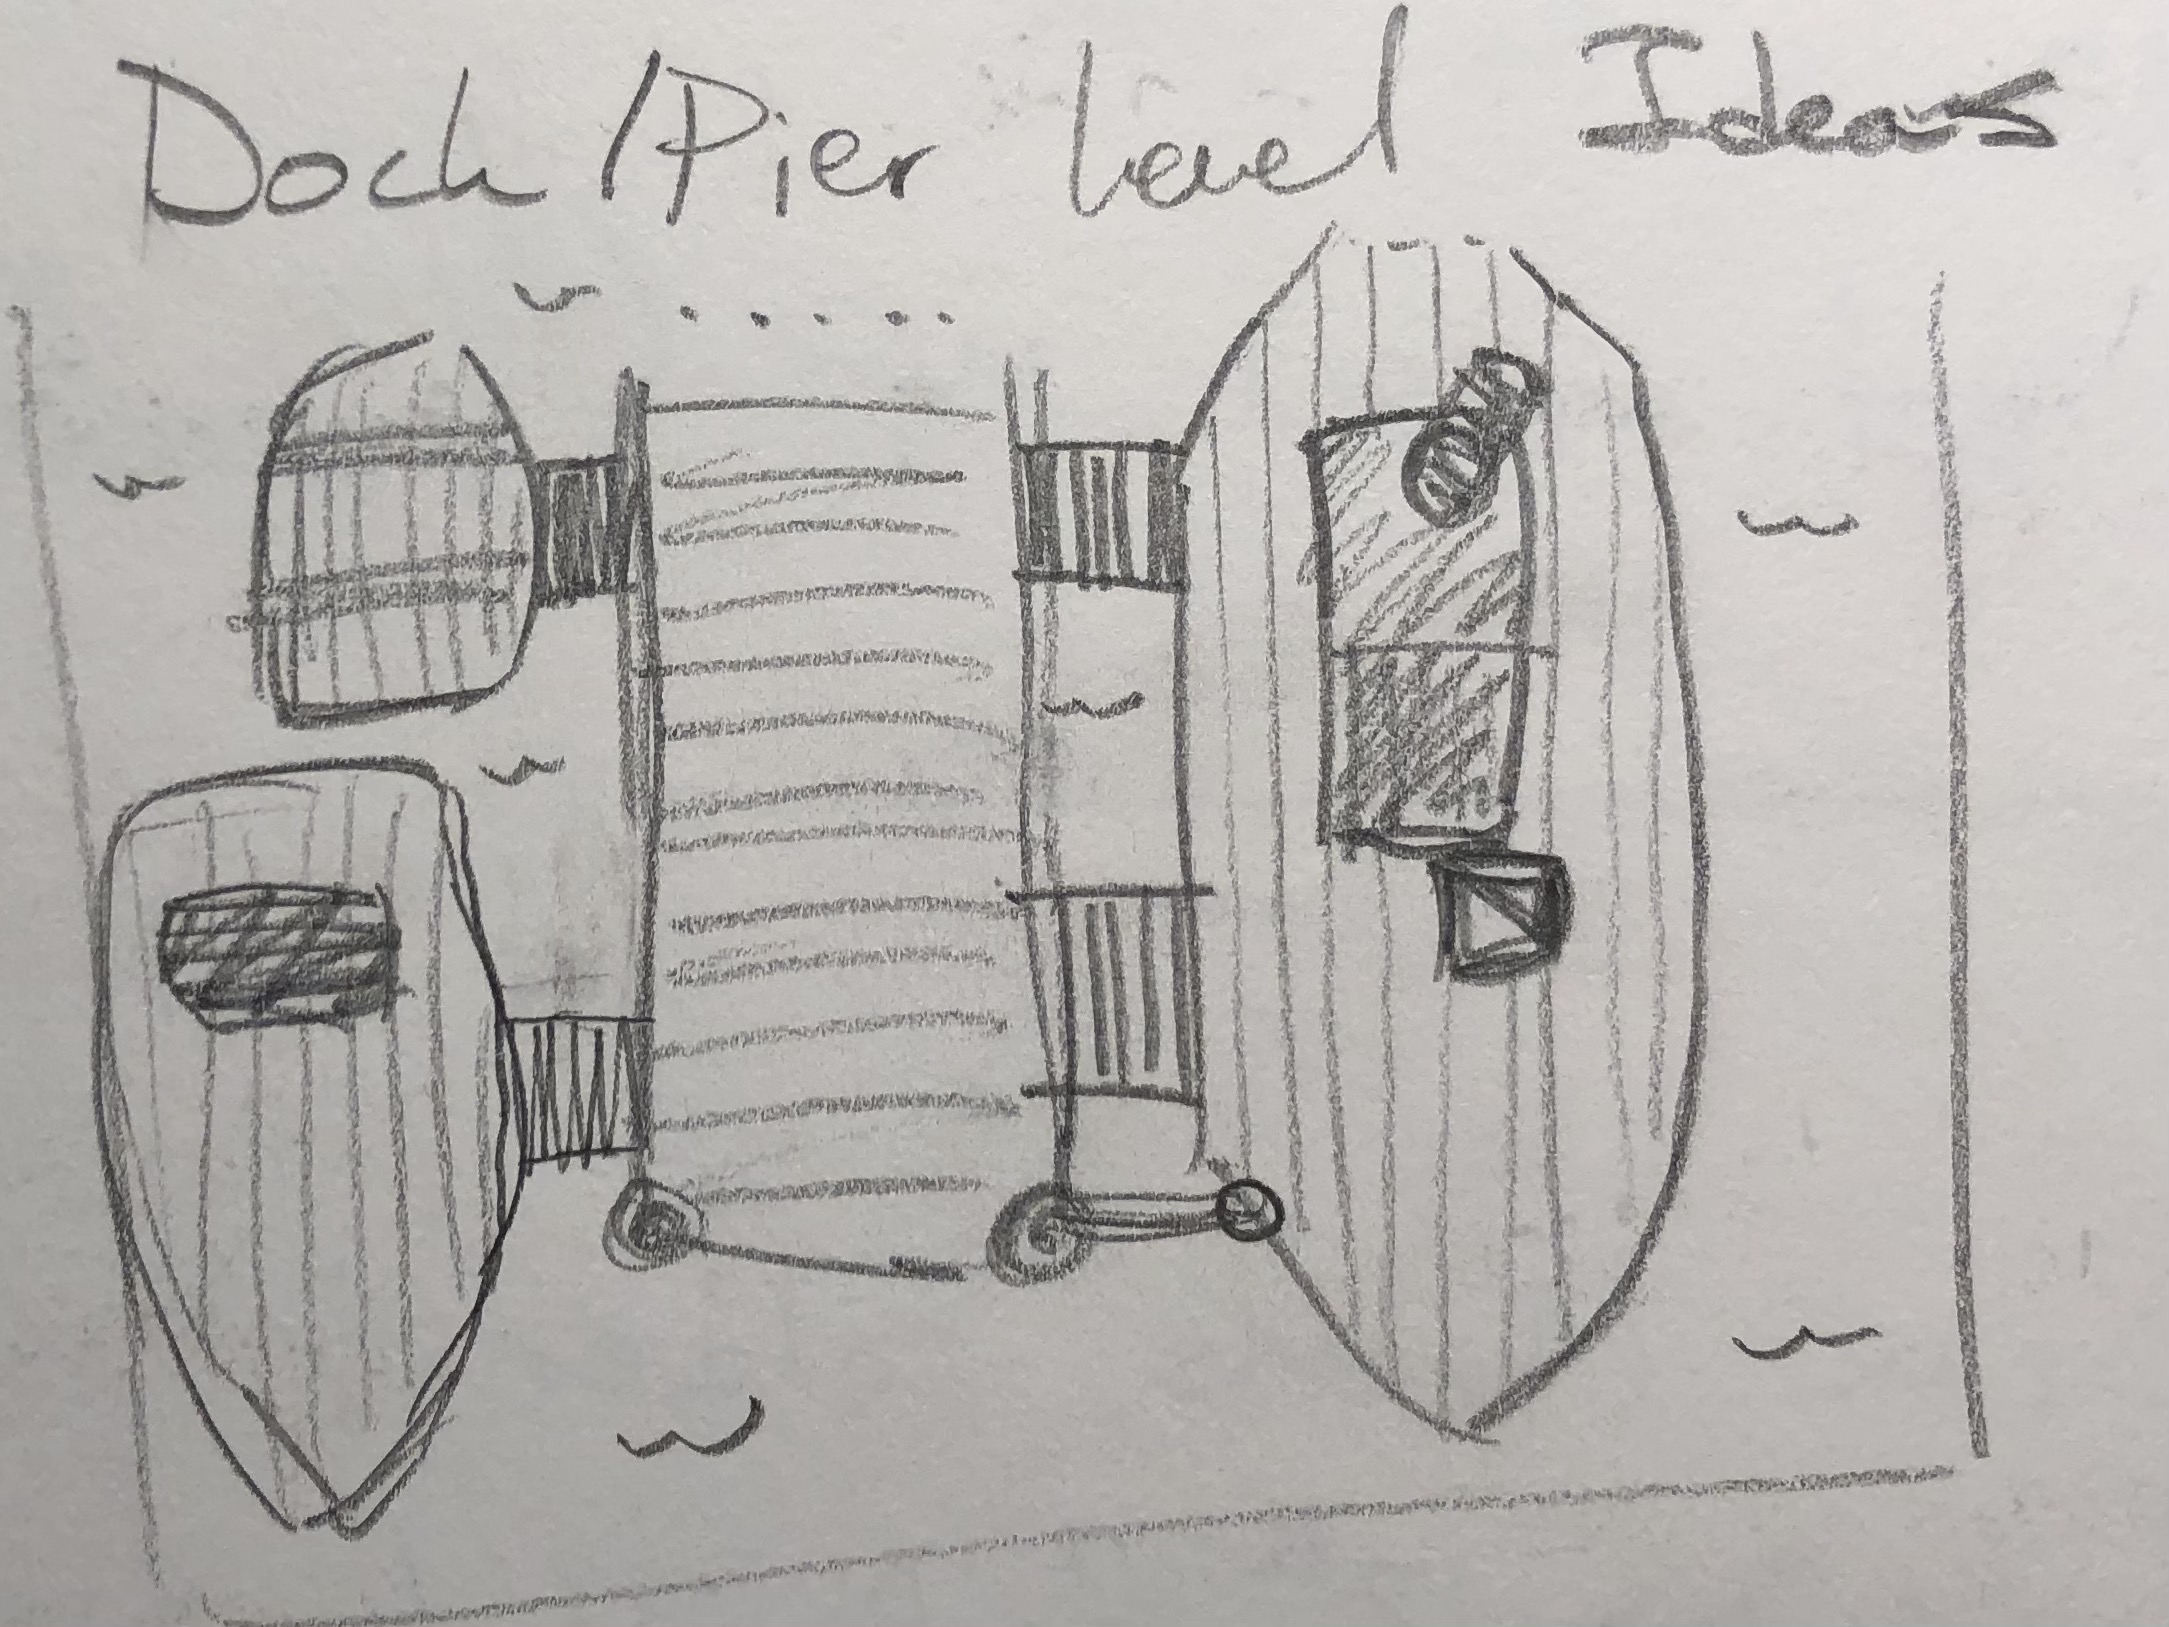 Dock/Pier Level Ideas